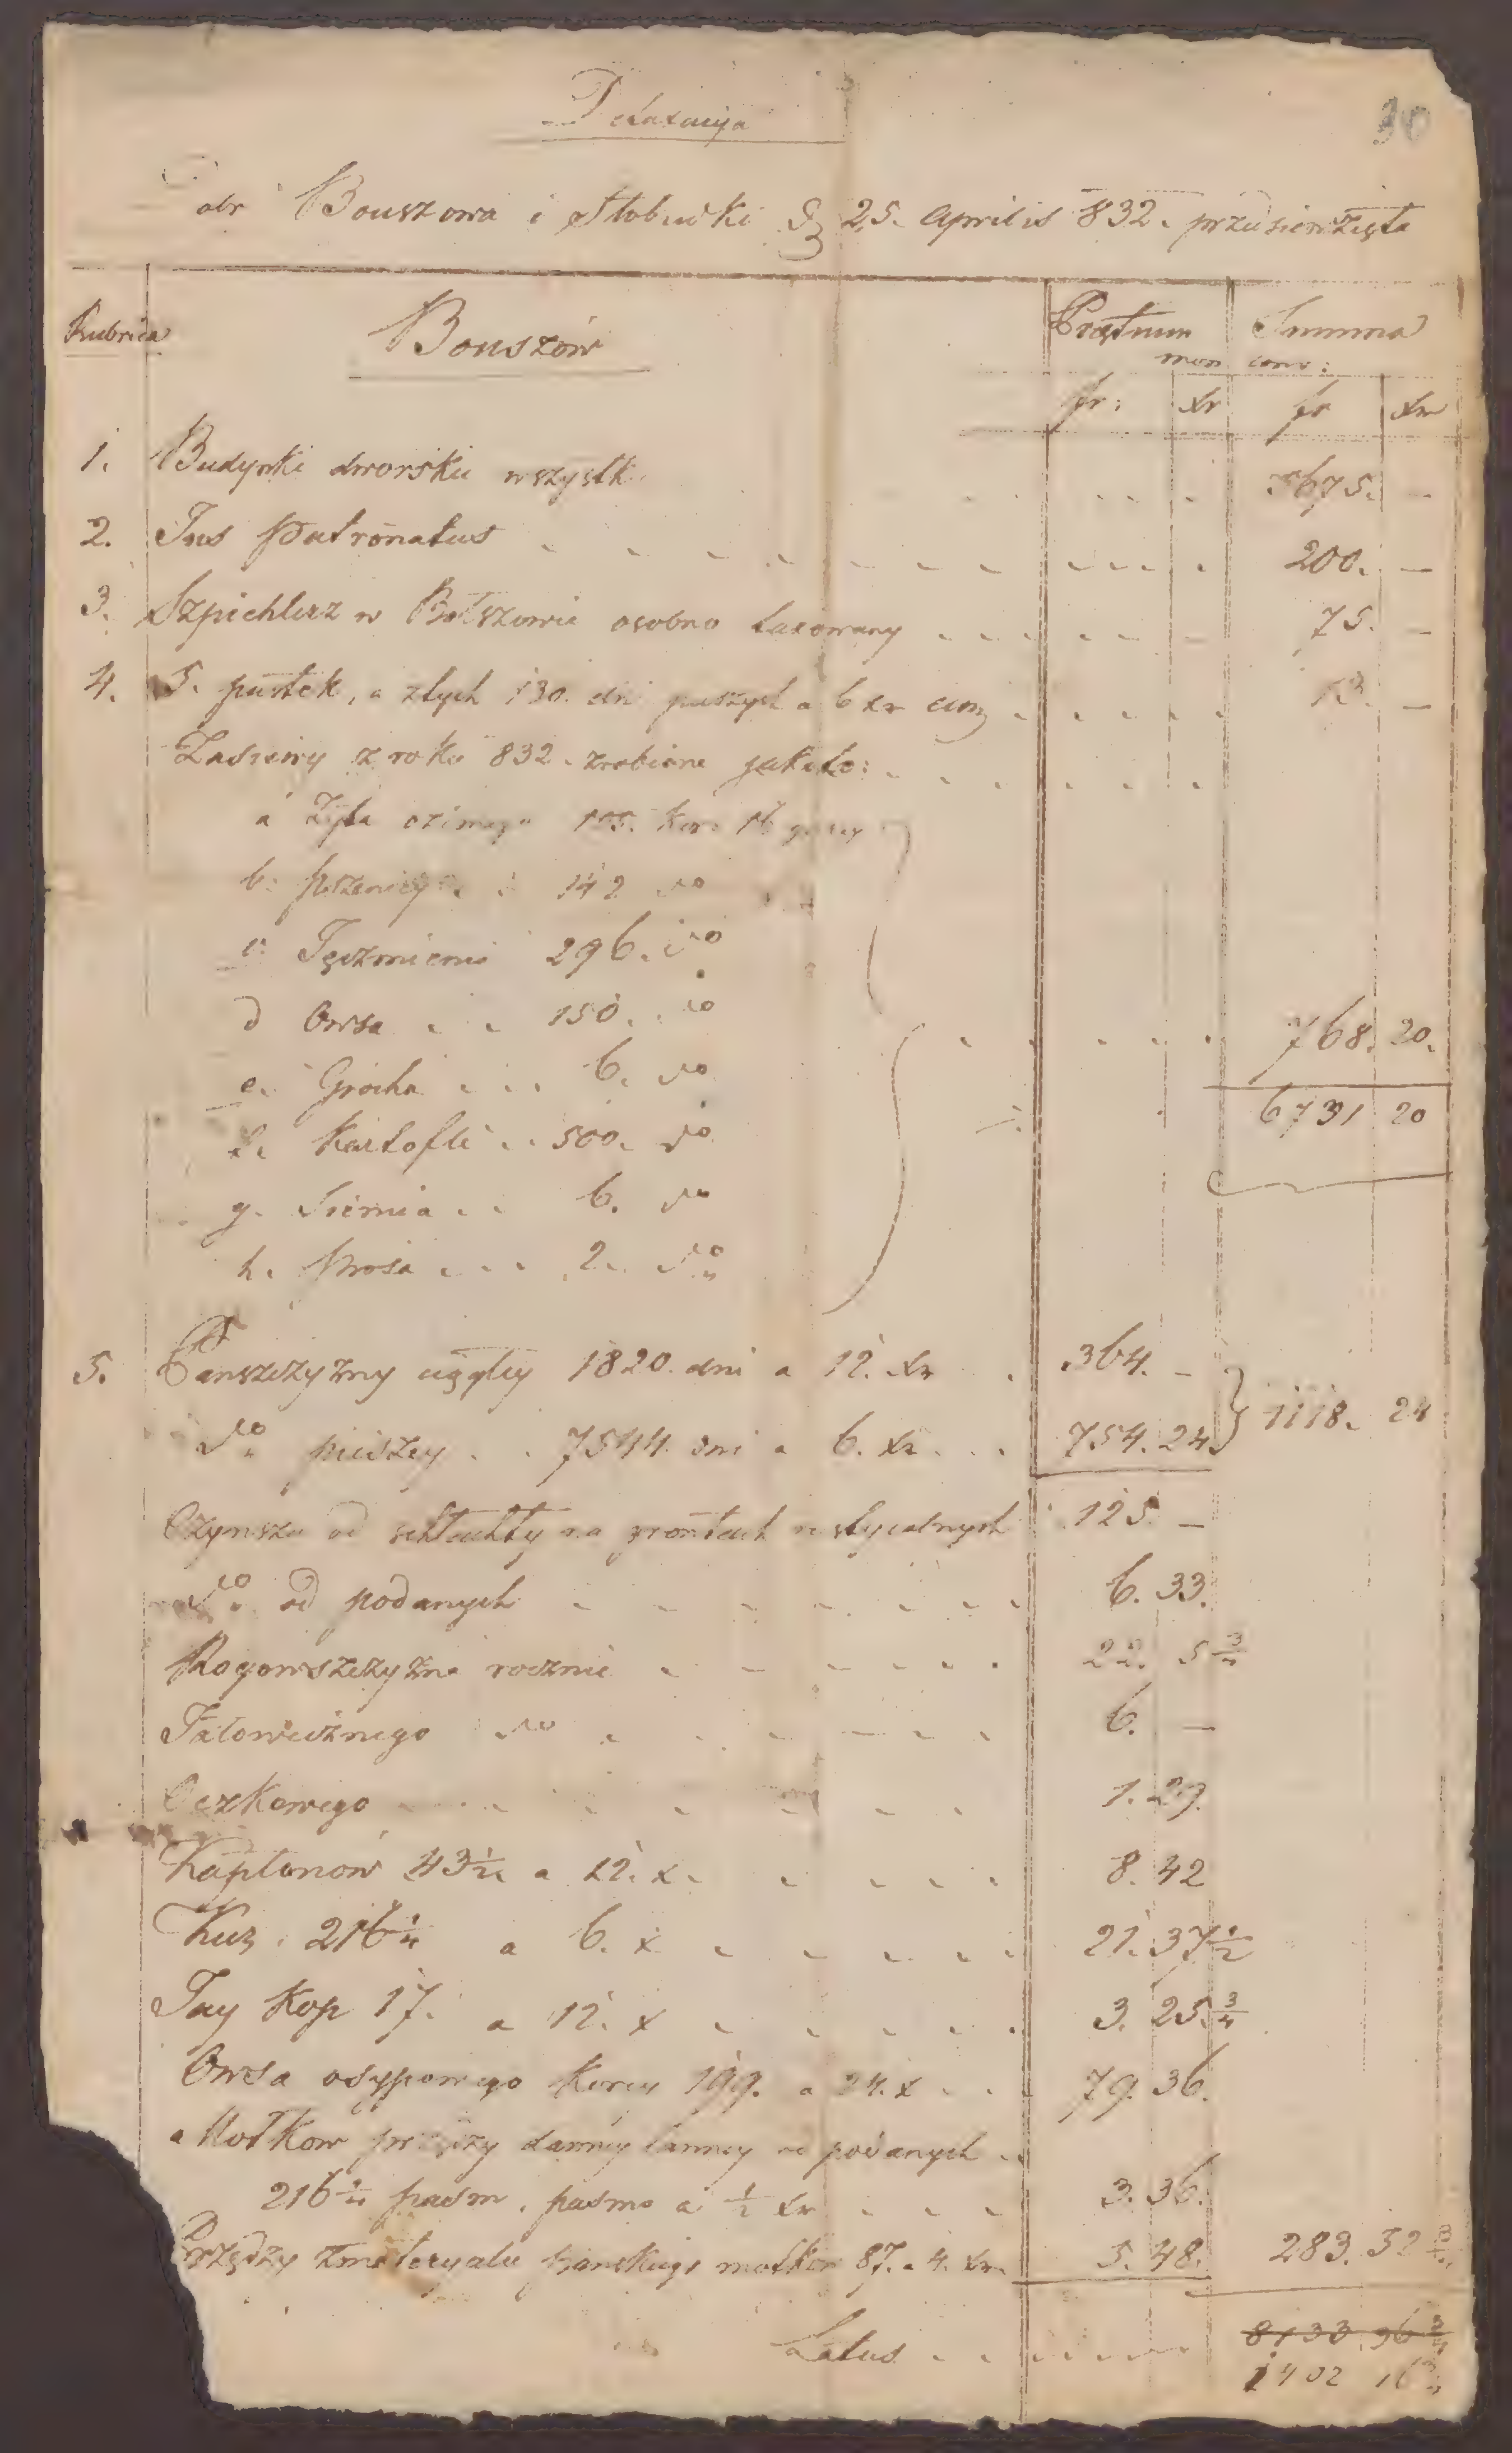 30
Detaxacyja
Dobr Bouszowa i Słobudki D 25. Aprilis 832. przedsięwzięta
Rubrica Bouszów Prętium Summa
mon conv:
fr: xr fr xr
1. Budynki dworskie wszystkie 5675. —
2. Jus Patronatus 200. —
3. Szpichlerz w Bołszowie osobno taxowany 75. —
4. 5. pustek, a złych 130. dni pieszych a 6 xr 13. —
Zasiewy z roku 832. zrobione jakoto:
a Żyta ozimego 105. kor 16 garcy
b: pszenicy 142 do
c: Jęczmienia 296. do
d Owsa 150. do
e. Grochu 6. do 768. 20.
f. Kartofli 500. do 6731 20
g. Siemia 6. do
h. Prosa 2. do
5. Panszczyzny ciągłey 1820. dni a 12. xr 364. —
do pieszey 7544. dni a 6. xr 754. 24 1118. 24
Czynszu od schlachty na grontach rustycalnych 125. —
do od podanych 6. 33.
Rogowszczyzna rocznie 22. 5 3/4
Jałowicznego do 6. —
Oczkowego 1. 29.
Kapłonów 43 1/2 a 12. x. 8. 42
Kur. 216 1/4 a 6. x 21. 37 1/2
Jay kop 17. a 12. x 3. 25 3/4
Owsa osypowego korcy 199. a 24. x 79. 36.
a Motkow przędzy danney od podanych
216 1/4 pasm. pasmo a 1/2 xr 3. 36.
Przędzy z materyalu panskiego motkow 87. a 4. xr. 5. 48. 283. 52 3/4
Latus 8133 36 3/4
1402 16 3/4